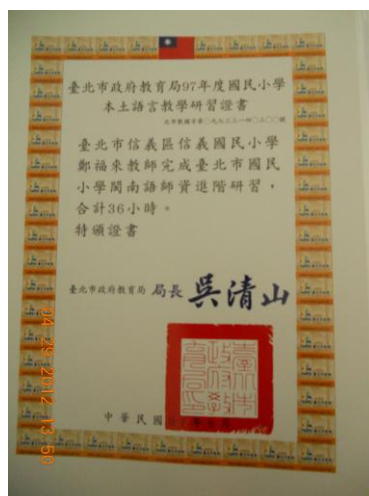 臺北市政府教育局97年度國民小學
本土語言教學研習證書
臺北市信義區信義國民小學
鄭福來教師完成臺北市國民
小學閩南語師資進階研習，
合計36小時。
特頒證書
臺北市政府教育局 局長 吳清山
中華民國
04/29/2012 13:50